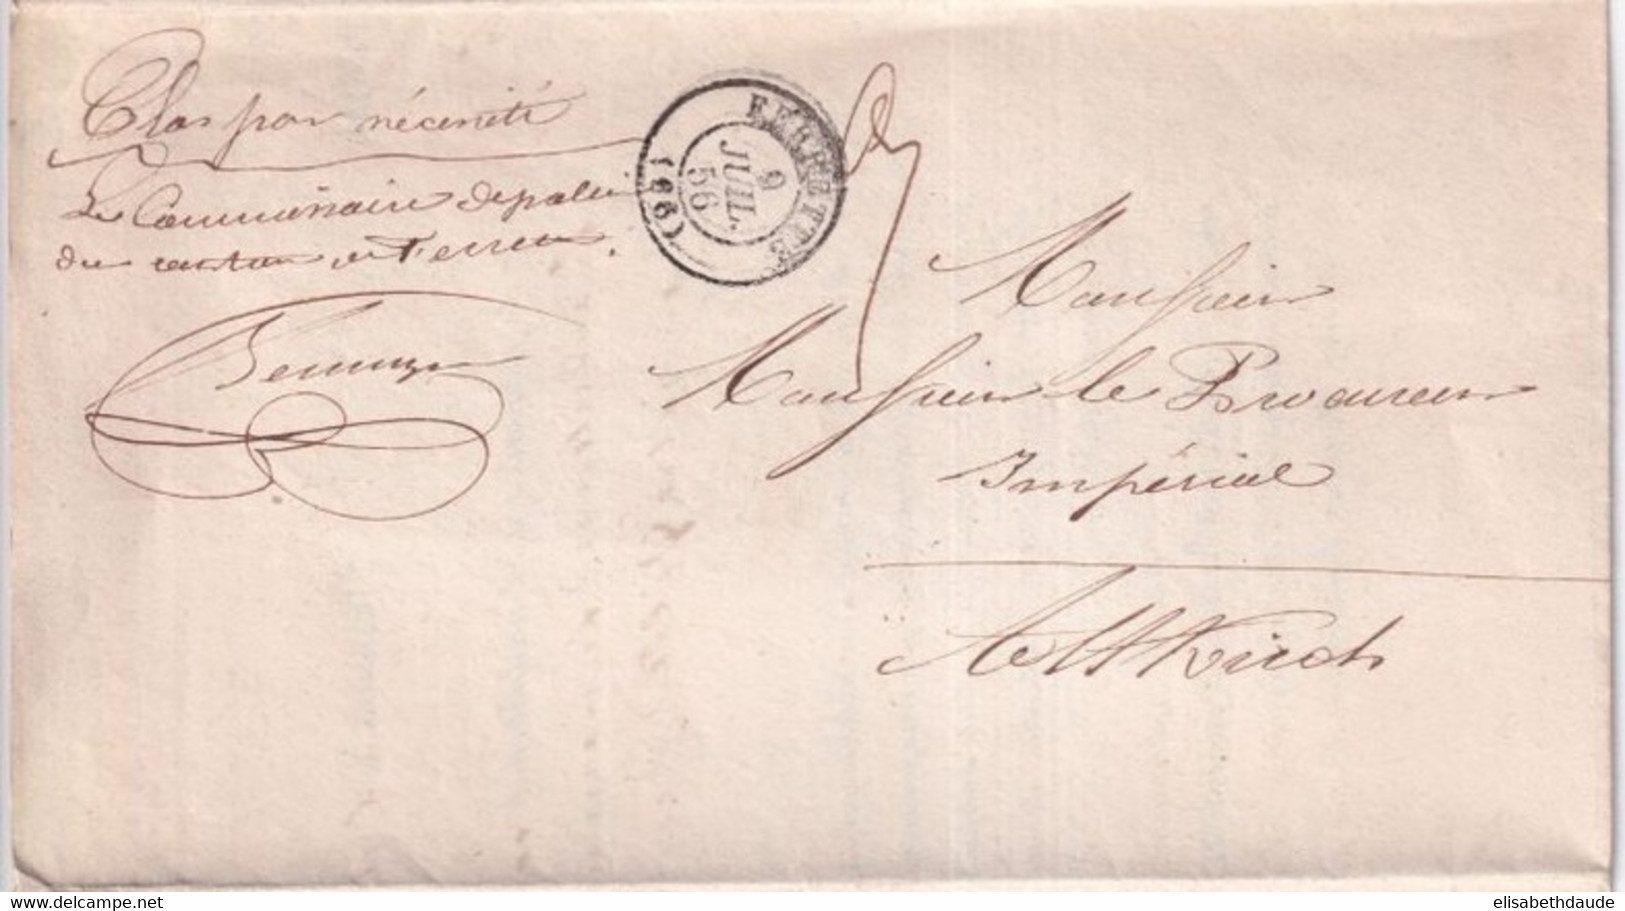 Clos par nécessité
Le Commissaire de police
du canton de Ferrette.
FERRETTE
9
JUIL.
56
(66)
Monsieur
Monsieur le Procureur
Impérial
Altkirch
www.delcampe.net
elisabethdaude